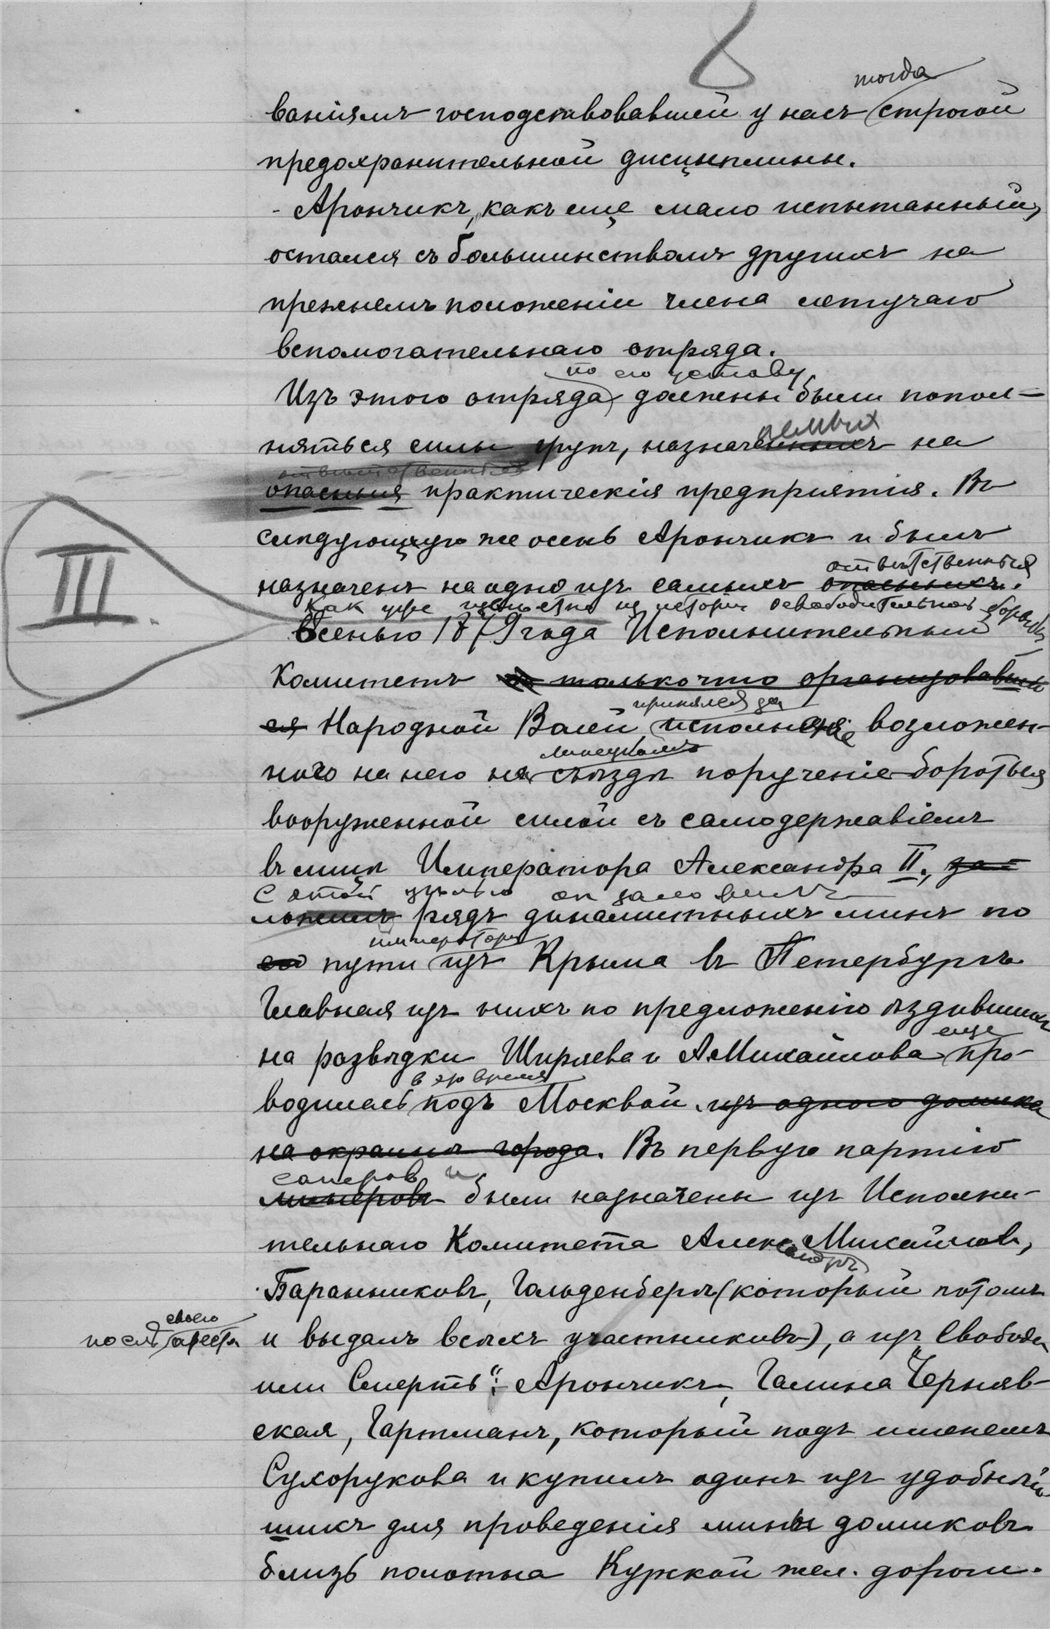 8
тогда
ваніямъ господствовавшей у насъ строгой
предохранительной дисциплины.
- Арончикъ, какъ еще мало испытанный,
остался съ большинствомъ другихъ на
прежнемъ положеніи члена летучаго
вспомогательнаго отряда.
по его уставу
Изъ этого отряда должны были попол-
няться силы групъ, назначенныхъ на
ответственныя
опасныя практическія предпріятія. Въ
слѣдующую же осень Арончикъ и былъ
ответственныя
назначенъ на одно изъ самыхъ опасныхъ.
III.
Как уже известно из истории освободительной борьбы,
Осенью 1879 года Исполнительный
Комитетъ только что организовавшей
ся Народной Воли, исполненіе возложен-
принялся за
липецкомъ
наго на него на съѣзды порученіе бороться
вооруженной силой съ самодержавіемъ
въ лицѣ Императора Александра II., за-
С этой цѣлью он заложилъ
ложилъ рядъ динамитныхъ минъ по
императора
его пути изъ Крыма въ Петербургъ
Главная изъ нихъ по предложенію ѣздившихъ
еще
на развѣдки Ширяева и А. Михайлова про-
в это время
водилась подъ Москвой изъ одного домика
на окраинѣ города. Въ первую партію
саперов и
минеровъ были назначены изъ Исполни-
тельнаго Комитета Александръ Михайловъ,
Баранниковъ, Гольденбергъ (который потомъ
послѣ своего ареста
и выдалъ всѣхъ участниковъ), а изъ "Свобода
или Смерть": Арончикъ, Галина Черняв-
ская, Гартманъ, который подъ именемъ
Сухорукова и купилъ одинъ изъ удобнѣй
шихъ для проведенія мины домиковъ
близь полотна Курской жел. дороги.